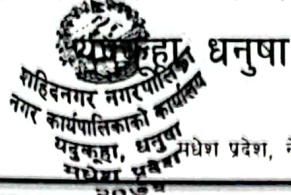 यदुकूहा, धनुषा
शहिदनगर नगरपालिका
नगर कार्यपालिकाको कार्यालय
यदुकूहा, धनुषा
मधेश प्रदेश, ने
मधेश प्रदेश
२०७४